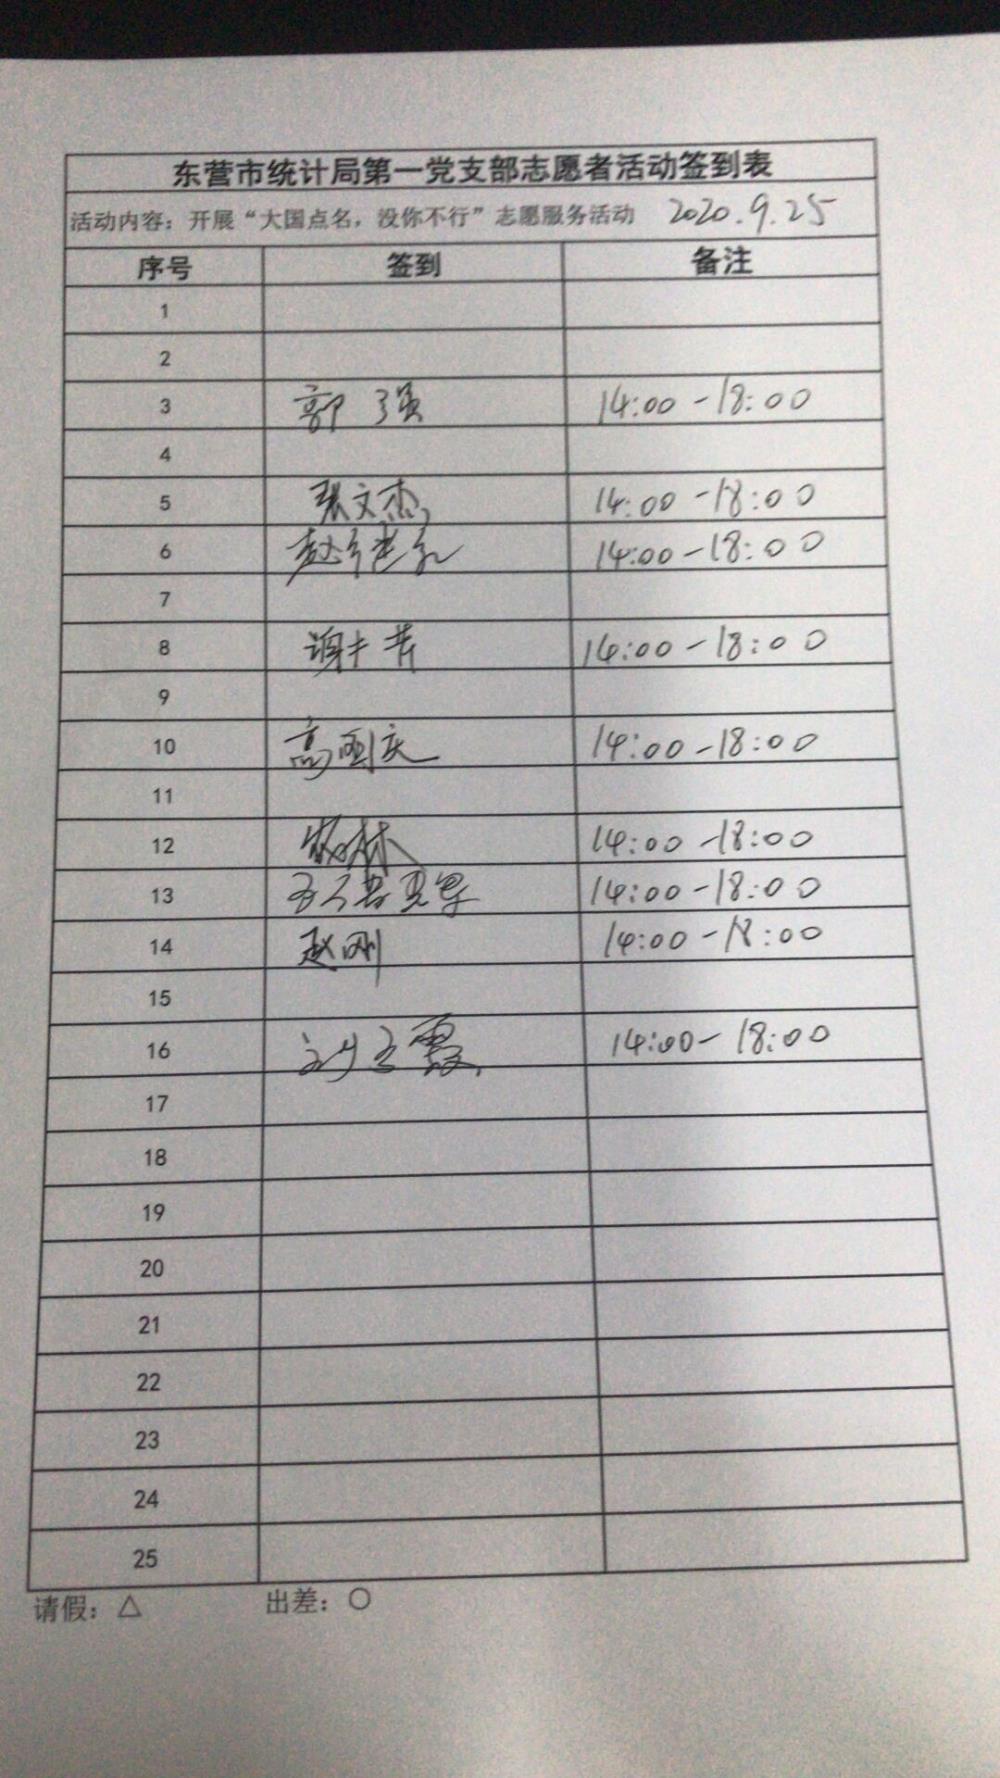 东营市统计局第一党支部志愿者活动签到表
活动内容：开展“大国点名，没你不行”志愿服务活动 2020.9.25
序号 签到 备注
1
2
3 郭强 14:00-18:00
4
5 张文杰 14:00-18:00
6 14:00-18:00
7
8 14:00-18:00
9
10 高国庆 14:00-18:00
11
12 14:00-18:00
13 14:00-18:00
14 赵刚 14:00-18:00
15
16 14:00-18:00
17
18
19
20
21
22
23
24
25
请假：△ 出差：○